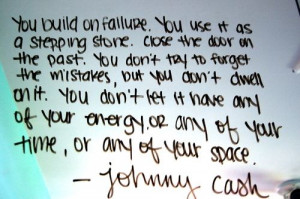 You build on failure. You use it as
a stepping stone. Close the door on
the past. You don't try to forget
the mistakes, but you don't dwell
on it. You don't let it have any
of your energy, or any of your
time, or any of your space.
– johnny cash